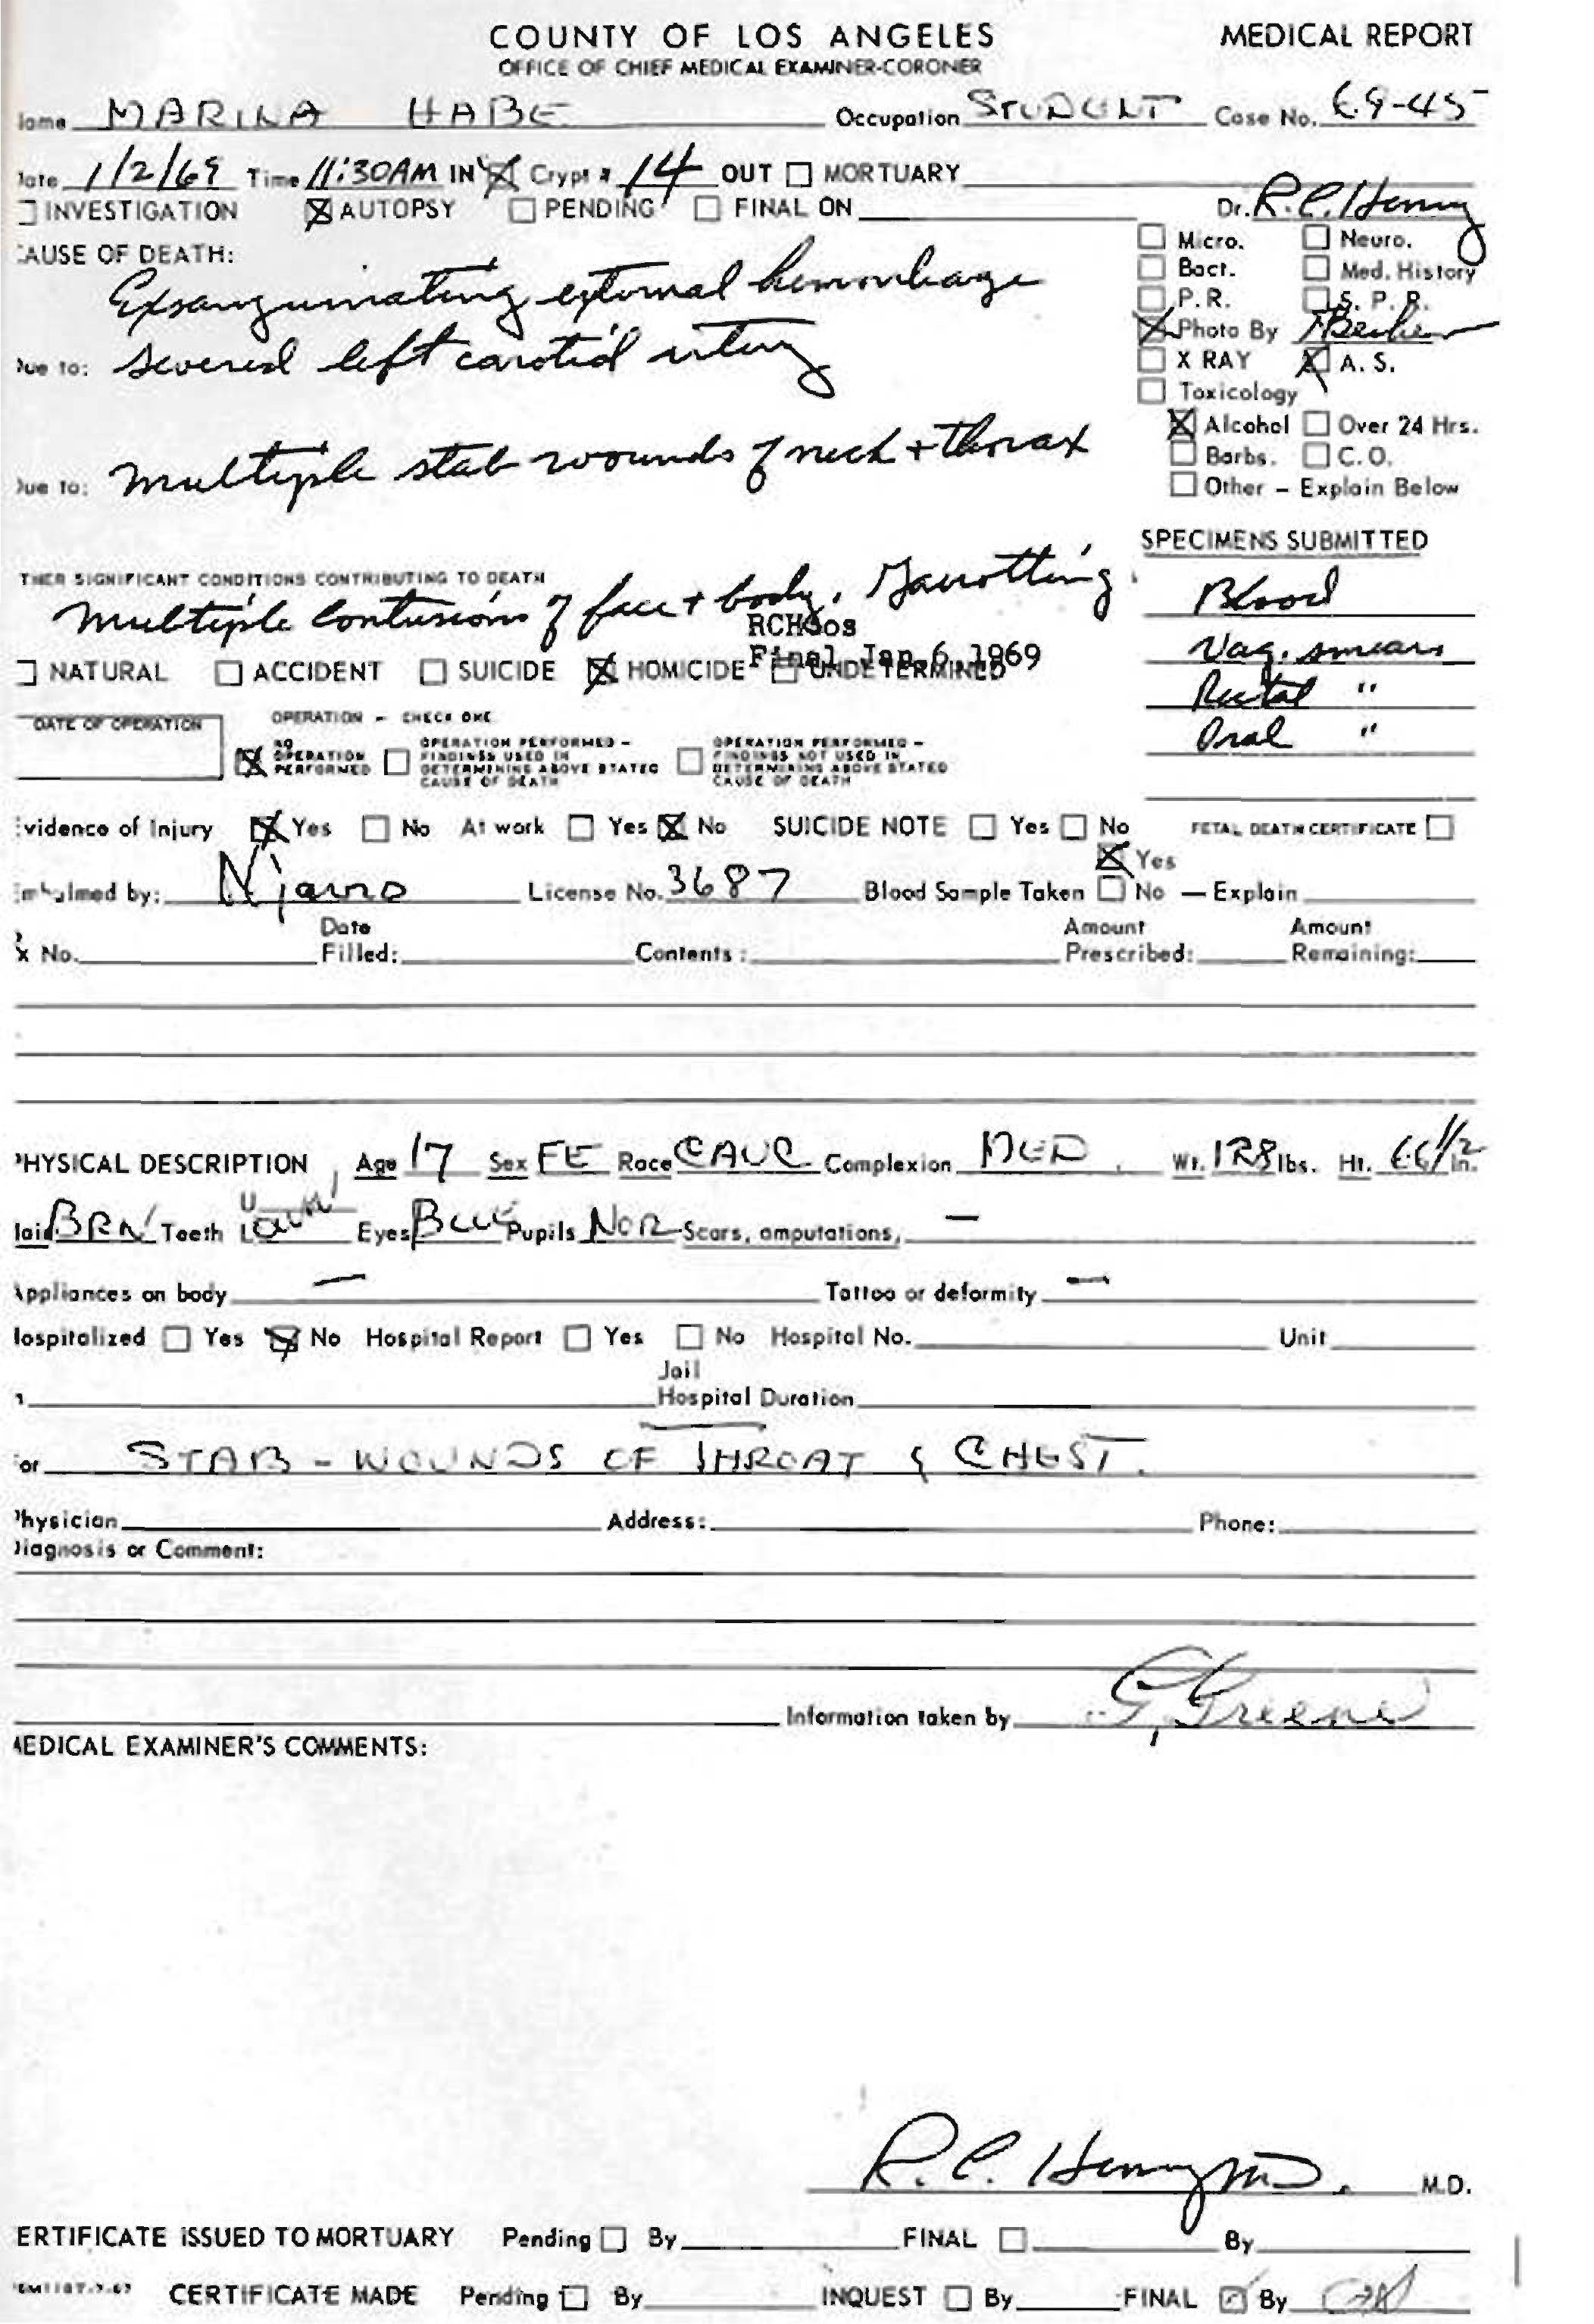 COUNTY OF LOS ANGELES MEDICAL REPORT
OFFICE OF CHIEF MEDICAL EXAMINER-CORONER
ame MARINA HABE Occupation STUDENT Case No. 69-45
ate 1/2/69 Time 11:30AM IN Crypt # 14 OUT MORTUARY
INVESTIGATION AUTOPSY PENDING FINAL ON Dr. R.C. Henry
AUSE OF DEATH:
Exsanguinating external hemorrhage
ue to: severed left carotid artery
ue to: Multiple stab wounds of neck + thorax
Micro. Neuro.
Bact. Med. History
P.R. S. P. R.
Photo By
X RAY A. S.
Toxicology
Alcohol Over 24 Hrs.
Barbs. C.O.
Other - Explain Below
SPECIMENS SUBMITTED
Blood
Vag. smears
Rectal "
Oral "
THER SIGNIFICANT CONDITIONS CONTRIBUTING TO DEATH
Multiple contusions of face + body, Garrotting
RCH:os
Final Jan 6, 1969
NATURAL ACCIDENT SUICIDE HOMICIDE UNDETERMINED
DATE OF OPERATION OPERATION - CHECK ONE
NO OPERATION PERFORMED
OPERATION PERFORMED - FINDINGS USED IN DETERMINING ABOVE STATED CAUSE OF DEATH
OPERATION PERFORMED - FINDINGS NOT USED IN DETERMINING ABOVE STATED CAUSE OF DEATH
vidence of Injury Yes No At work Yes No SUICIDE NOTE Yes No FETAL DEATH CERTIFICATE
Yes
balmed by: License No. 3687 Blood Sample Taken No — Explain
Date Amount Amount
x No. Filled: Contents: Prescribed: Remaining:
HYSICAL DESCRIPTION Age 17 Sex FE Race CAUC Complexion MED Wt. 128 lbs. Ht. 66 1/2 In.
air BRN Teeth U L Eyes BLUE Pupils NOR Scars, amputations, —
Appliances on body — Tattoo or deformity —
Hospitalized Yes No Hospital Report Yes No Hospital No. Unit
Jail
Hospital Duration
or STAB-WOUNDS OF THROAT & CHEST.
Physician Address: Phone:
Diagnosis or Comment:
Information taken by G. Greene
MEDICAL EXAMINER'S COMMENTS:
R. C. Henry M.D. M.D.
ERTIFICATE ISSUED TO MORTUARY Pending By FINAL By
CERTIFICATE MADE Pending By INQUEST By FINAL By